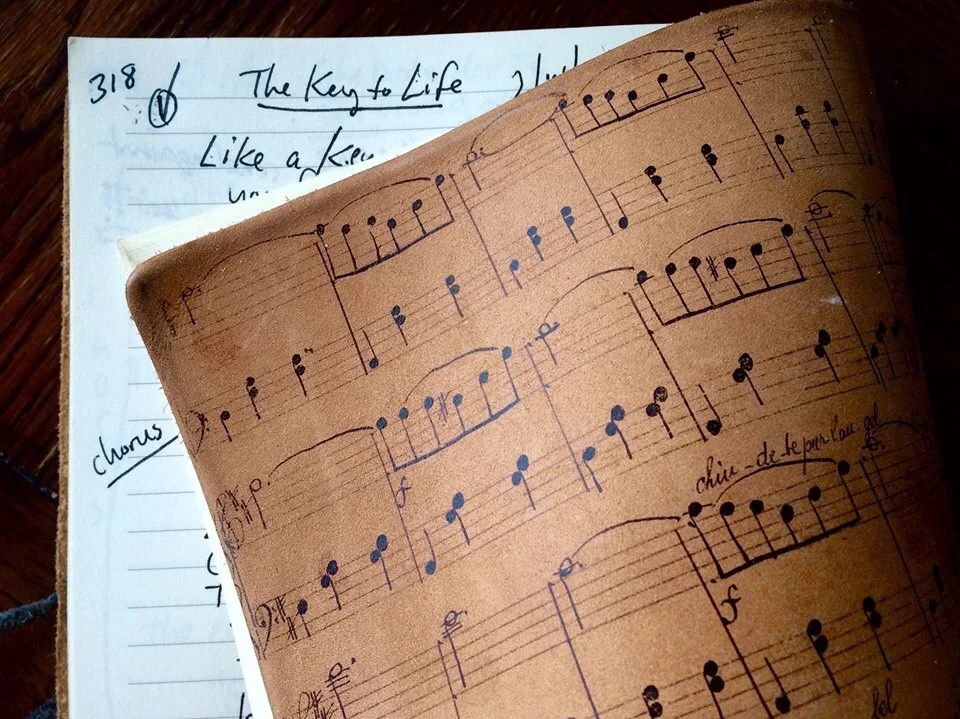 318
The Key to Life
Like a Key
chorus
chiu-de-te pur l'au-gel
f
f